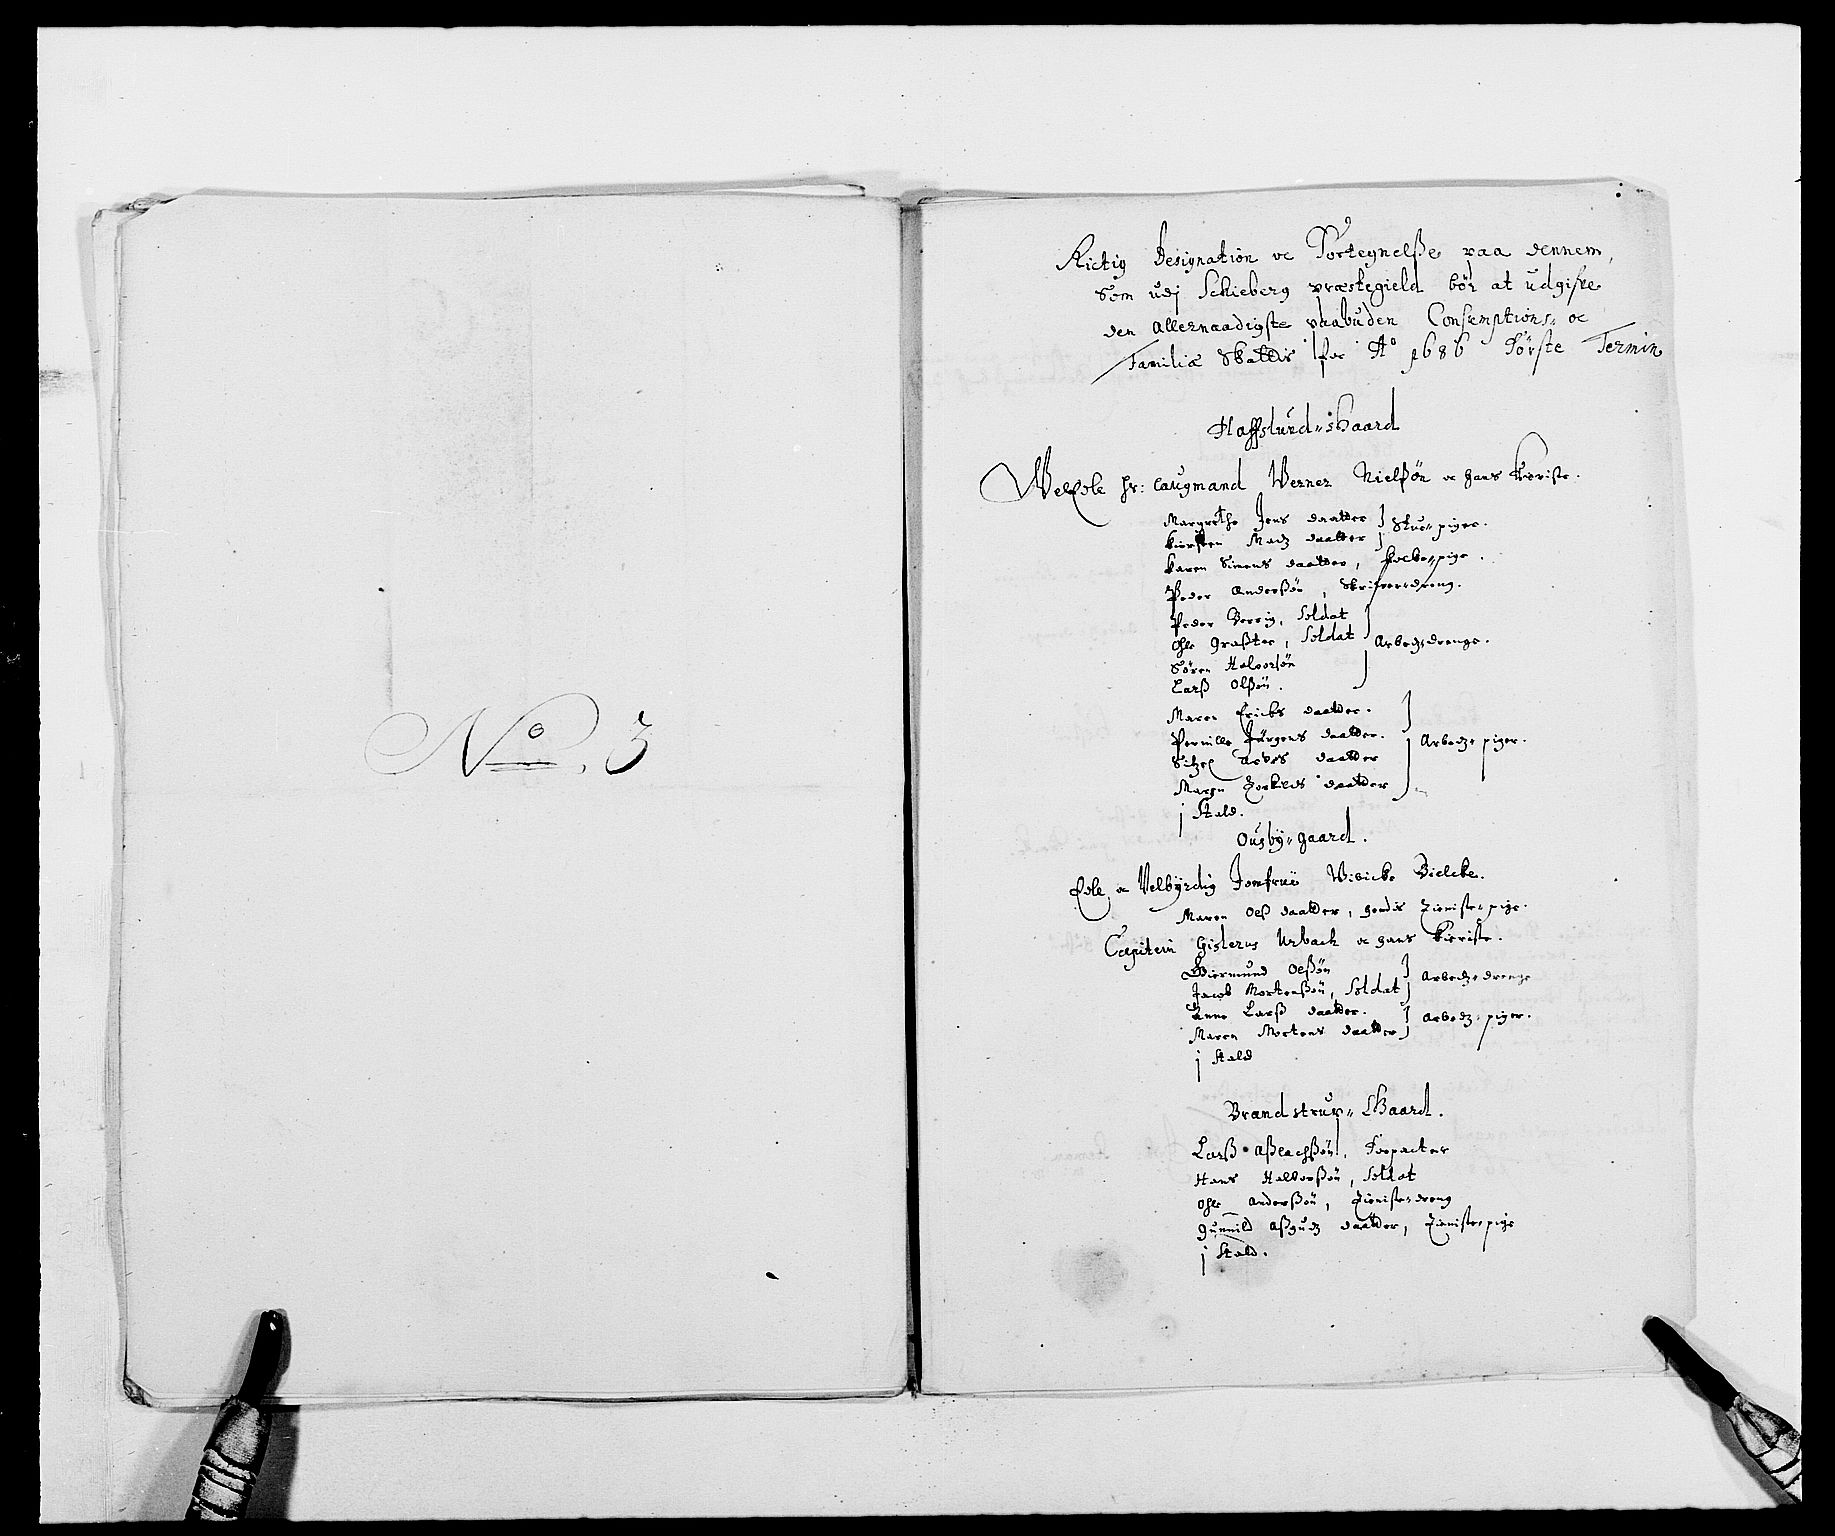 No. 3
Rictig Designation oc Fortegnelße paa dennem,
Som udj Schieberg præstegield bør at udgifve
den allernaadigste paabuden Consumptions- oc
Familiæ Skattis for Ao 1686 Første Termin
Haffslund-Gaard
Welædle Hr: Laugmand Werner Nielßøn oc hans Kieriste.
Margrethe Jens daatter } Stue-piger.
Kiersten Madz daatter
Karen Simens daatter, Kocke-pige.
Peder Anderßøn, Skrifver-dreng.
Peder Verrig, Soldat
Ole Graßter, Soldat } Arbedz-drenge.
Søren Halvorsøn
Larß Olßøn.
Maren Ericks daatter.
Pernille Jürgens daatter. } Arbedz-piger.
Sitzel daatter
Maren Torkilds daatter
j Stald.
Ousby-gaard.
Edle oc Velbyrdig Jomfrue Wivicke Bielcke.
Maren Oelß daatter, hendis Tieniste-pige.
Capitein Gislerus Urback oc hans Kieriste.
Giermund Olßøn } Arbedz-drenge
Jacob Mortenßøn, Soldat
Anne Larß daatter. } Arbedz-piger.
Maren Mortens daatter
j Stald
Brandstrup-Gaard.
Larß Aßlachßøn, Forpacter
Hans Halvorßøn, Soldat
Ole Anderßøn, Tieniste-dreng
Gunnild Aßgudz daatter, Tieniste-pige
j Stald.